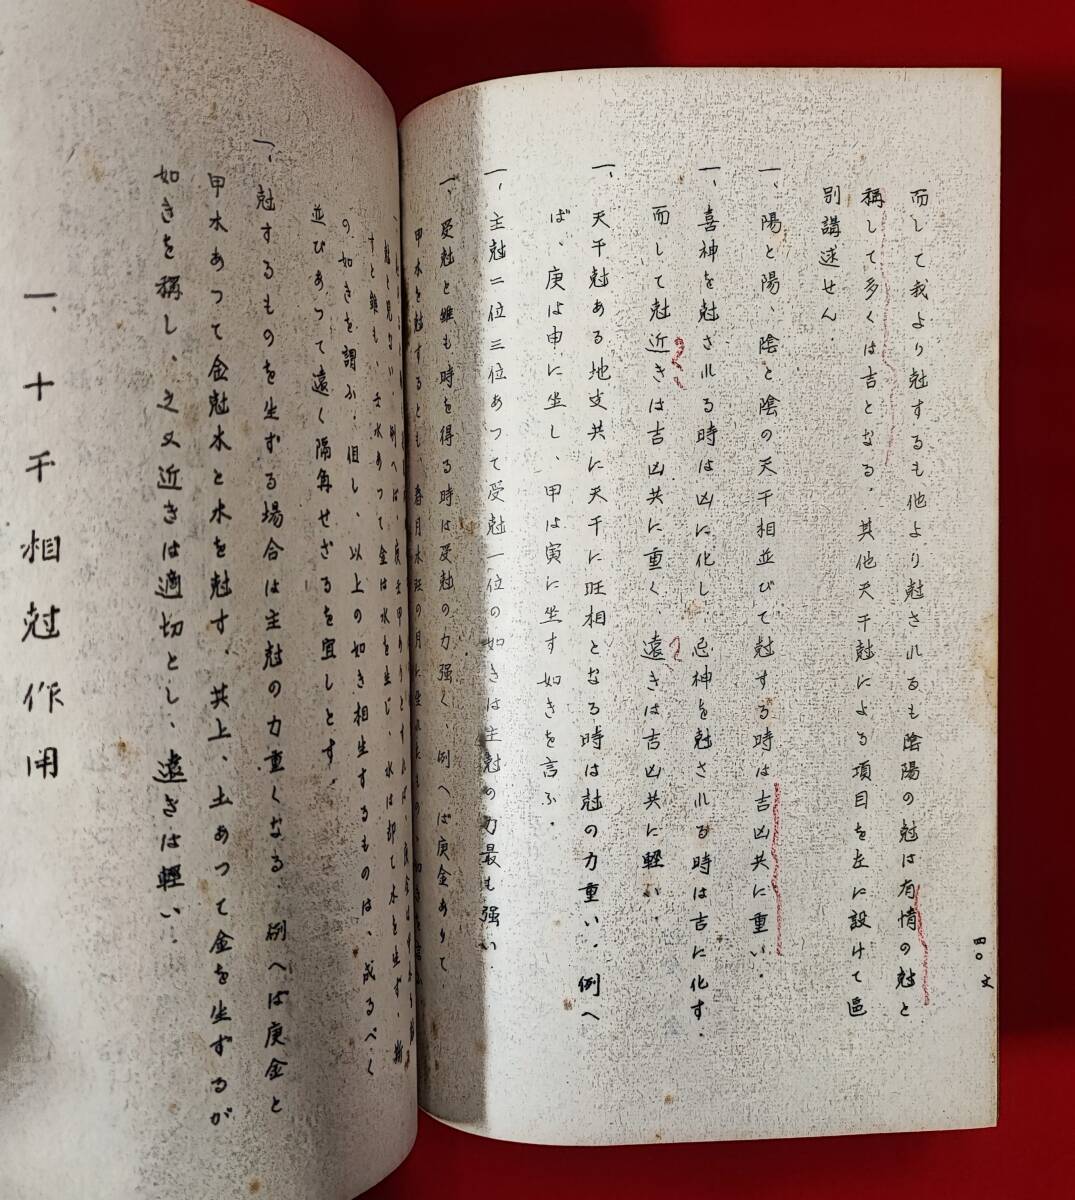 而して我より尅するも他より尅されるも陰陽の尅は有情の尅と
稱して多くは吉となる.其他天干尅による項目を左に設けて區
別講述せん
一、陽と陽、陰と陰の天干相並びて尅する時は吉凶共に重い.
一、喜神を尅される時は凶に化し、忌神を尅される時は吉に化す.
而して尅近きは吉凶共に重く、遠きは吉凶共に軽い、
一、天干尅ある地支共に天干に旺相となる時は尅の力重い、例へ
ば、庚は申に坐し、甲は寅に坐す如きを言ふ.
一、主尅二位三位あつて受尅一位の如きは主尅の力最も強い
一、受尅と雖も時を得る時は受尅の力强く、例へば庚金ありて
甲木を尅するとも、春月木旺の月に
例へば庚壬甲ありとすれば、庚金は
すと雖も、壬水あつて金は水を生じ、水は却て木を生ず、斯
の如きを謂ふ.但し、以上の如き相生するものは、成るべく
並びあつて遠く隔再せざるを宜しとす.
一、尅するものを生ずる場合は主尅の力重くなる.例へば庚金と
甲木あつて金尅木と木を尅す.共上、土あつて金を生ずるが
如きを稱し、之又近きは適切とし、遠きは軽い.
一、十干相尅作用
四〇文